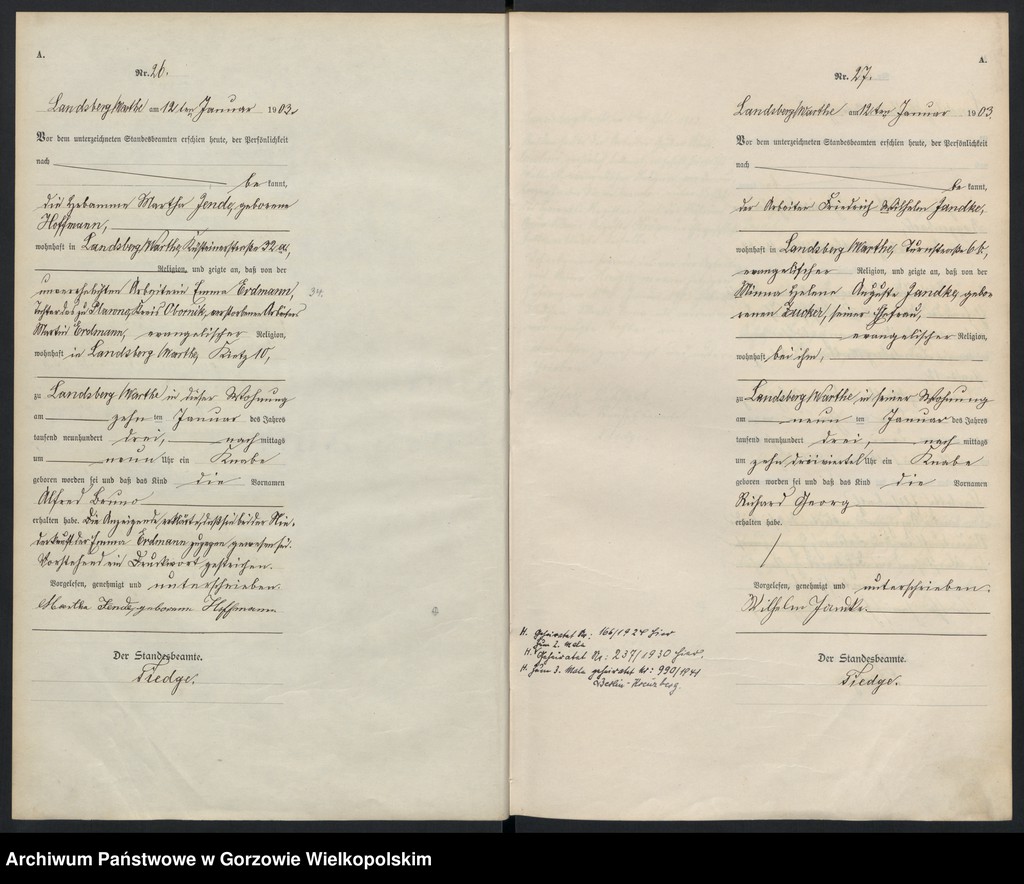 A.
Nr. 26.
Landsberg Warthe am 12 ten Januar 1903.
Vor dem unterzeichneten Standesbeamten erschien heute, der Persönlichkeit
nach
be kannt,
die Hebamme Martha Jende, geborene
Hoffmann,
wohnhaft in Landsberg Warthe, Küstrinerstraße 32a,
Religion, und zeigte an, daß von der
unverehelichten Arbeiterin Emma Erdmann,
34.
Tochter des zu Kreis Obornik, verstorbenen Arbeiters
Martin Erdmann, evangelischer Religion,
wohnhaft in Landsberg Warthe, Kietz 10,
zu Landsberg Warthe in dieser Wohnung
am zehn ten Januar des Jahres
tausend neunhundert drei, nach mittags
um neun Uhr ein Knabe
geboren worden sei und daß das Kind die Vornamen
Alfred Bruno
erhalten habe. Die Anzeigende erklärte, daß sie bei der Nie-
derkunft der Emma Erdmann zugegen gewesen sei.
Vorstehend ein Druckwort gestrichen.
Vorgelesen, genehmigt und unterschrieben.
Martha Jende, geborene Hoffmann
Der Standesbeamte.
Tiedge.
A.
Nr. 27.
Landsberg Warthe am 12 ten Januar 1903.
Vor dem unterzeichneten Standesbeamten erschien heute, der Persönlichkeit
nach
be kannt,
der Arbeiter Friedrich Wilhelm Jandke,
wohnhaft in Landsberg Warthe, Turnstraße 66,
evangelischer Religion, und zeigte an, daß von der
Minna Helene Auguste Jandke, gebo-
renen Zucker, seiner Ehefrau,
evangelischer Religion,
wohnhaft bei ihm,
zu Landsberg Warthe in seiner Wohnung
am neun ten Januar des Jahres
tausend neunhundert drei, nach mittags
um zehn dreiviertel Uhr ein Knabe
geboren worden sei und daß das Kind die Vornamen
Richard Georg
erhalten habe.
Vorgelesen, genehmigt und unterschrieben.
Wilhelm Jandke.
Der Standesbeamte.
Tiedge.
H. Geheiratet Nr: 166/1924 hier
zum 2. Male
H. Geheiratet Nr: 237/1930 hier.
H. zum 3. Male geheiratet Nr: 990/1941
Berlin-Kreuzberg.
Archiwum Państwowe w Gorzowie Wielkopolskim